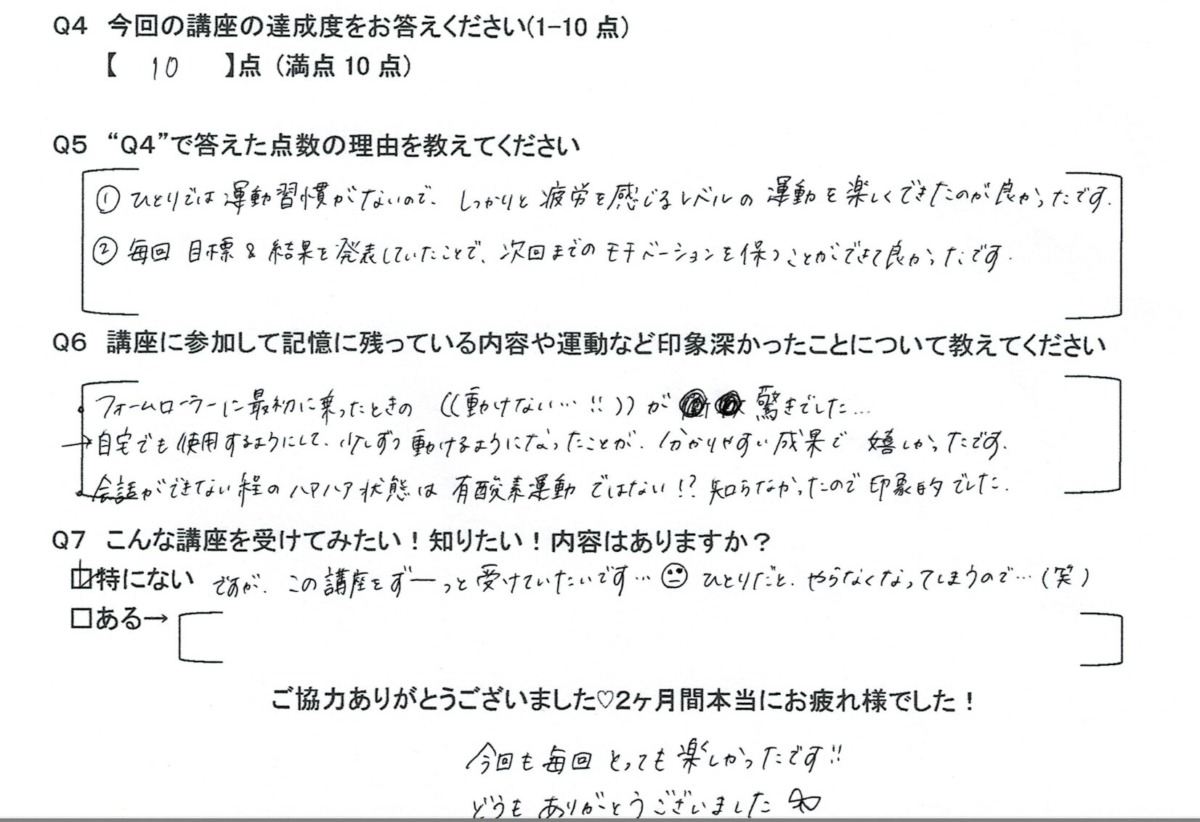 Q4 今回の講座の達成度をお答えください(1-10 点)
【 10 】点 (満点 10 点)
Q5 “Q4”で答えた点数の理由を教えてください
① ひとりでは運動習慣がないので、しっかりと疲労を感じるレベルの運動を楽しくできたのが良かったです.
② 毎回 目標 & 結果を発表していたことで、次回までのモチベーションを保つことができて良かったです.
Q6 講座に参加して記憶に残っている内容や運動など印象深かったことについて教えてください
・フォームローラーに最初に乗ったときの ((動けない…!!))が 驚きでした…
→自宅でも使用するようにして、少しずつ動けるようになったことが、分かりやすい成果で 嬉しかったです.
・会話ができない程のハアハア状態は有酸素運動ではない!? 知らなかったので印象的でした.
Q7 こんな講座を受けてみたい！知りたい！内容はありますか？
☑特にない ですが、この講座をずーっと受けていたいです… ひとりだと、やらなくなってしまうので…(笑)
□ある→
ご協力ありがとうございました♡2ヶ月間本当にお疲れ様でした！
今回も毎回とっても楽しかったです!!
どうもありがとうございました